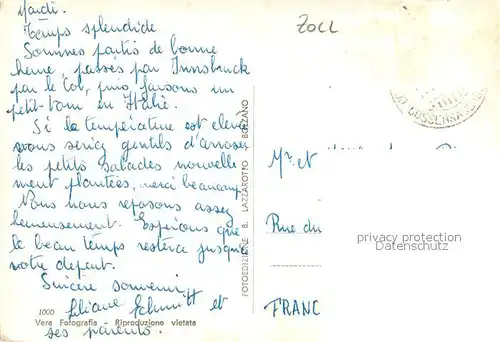 Mardi.
Temps splendide
Sommes partis de bonne
heure, passés par Innsbruck
par le Col, puis faisons un
petit tour en Italie.
Si la température est élevée
vous seriez gentils d'arroser
les petits salades nouvelle
ment plantées, merci beaucoup
Nous nous reposons assez
heureusement. Espérons que
le beau temps restera jusque
votre départ.
Sincère souvenir
Liliane Schmitt et
ses parents.
1000
Vera Fotografia - Riproduzione vietata
FOTOEDIZIONE B. LAZZAROTTO BOLZANO
ZOLL
COSSENSASS
Mr. et
Rue du
FRANC
privacy protection
Datenschutz